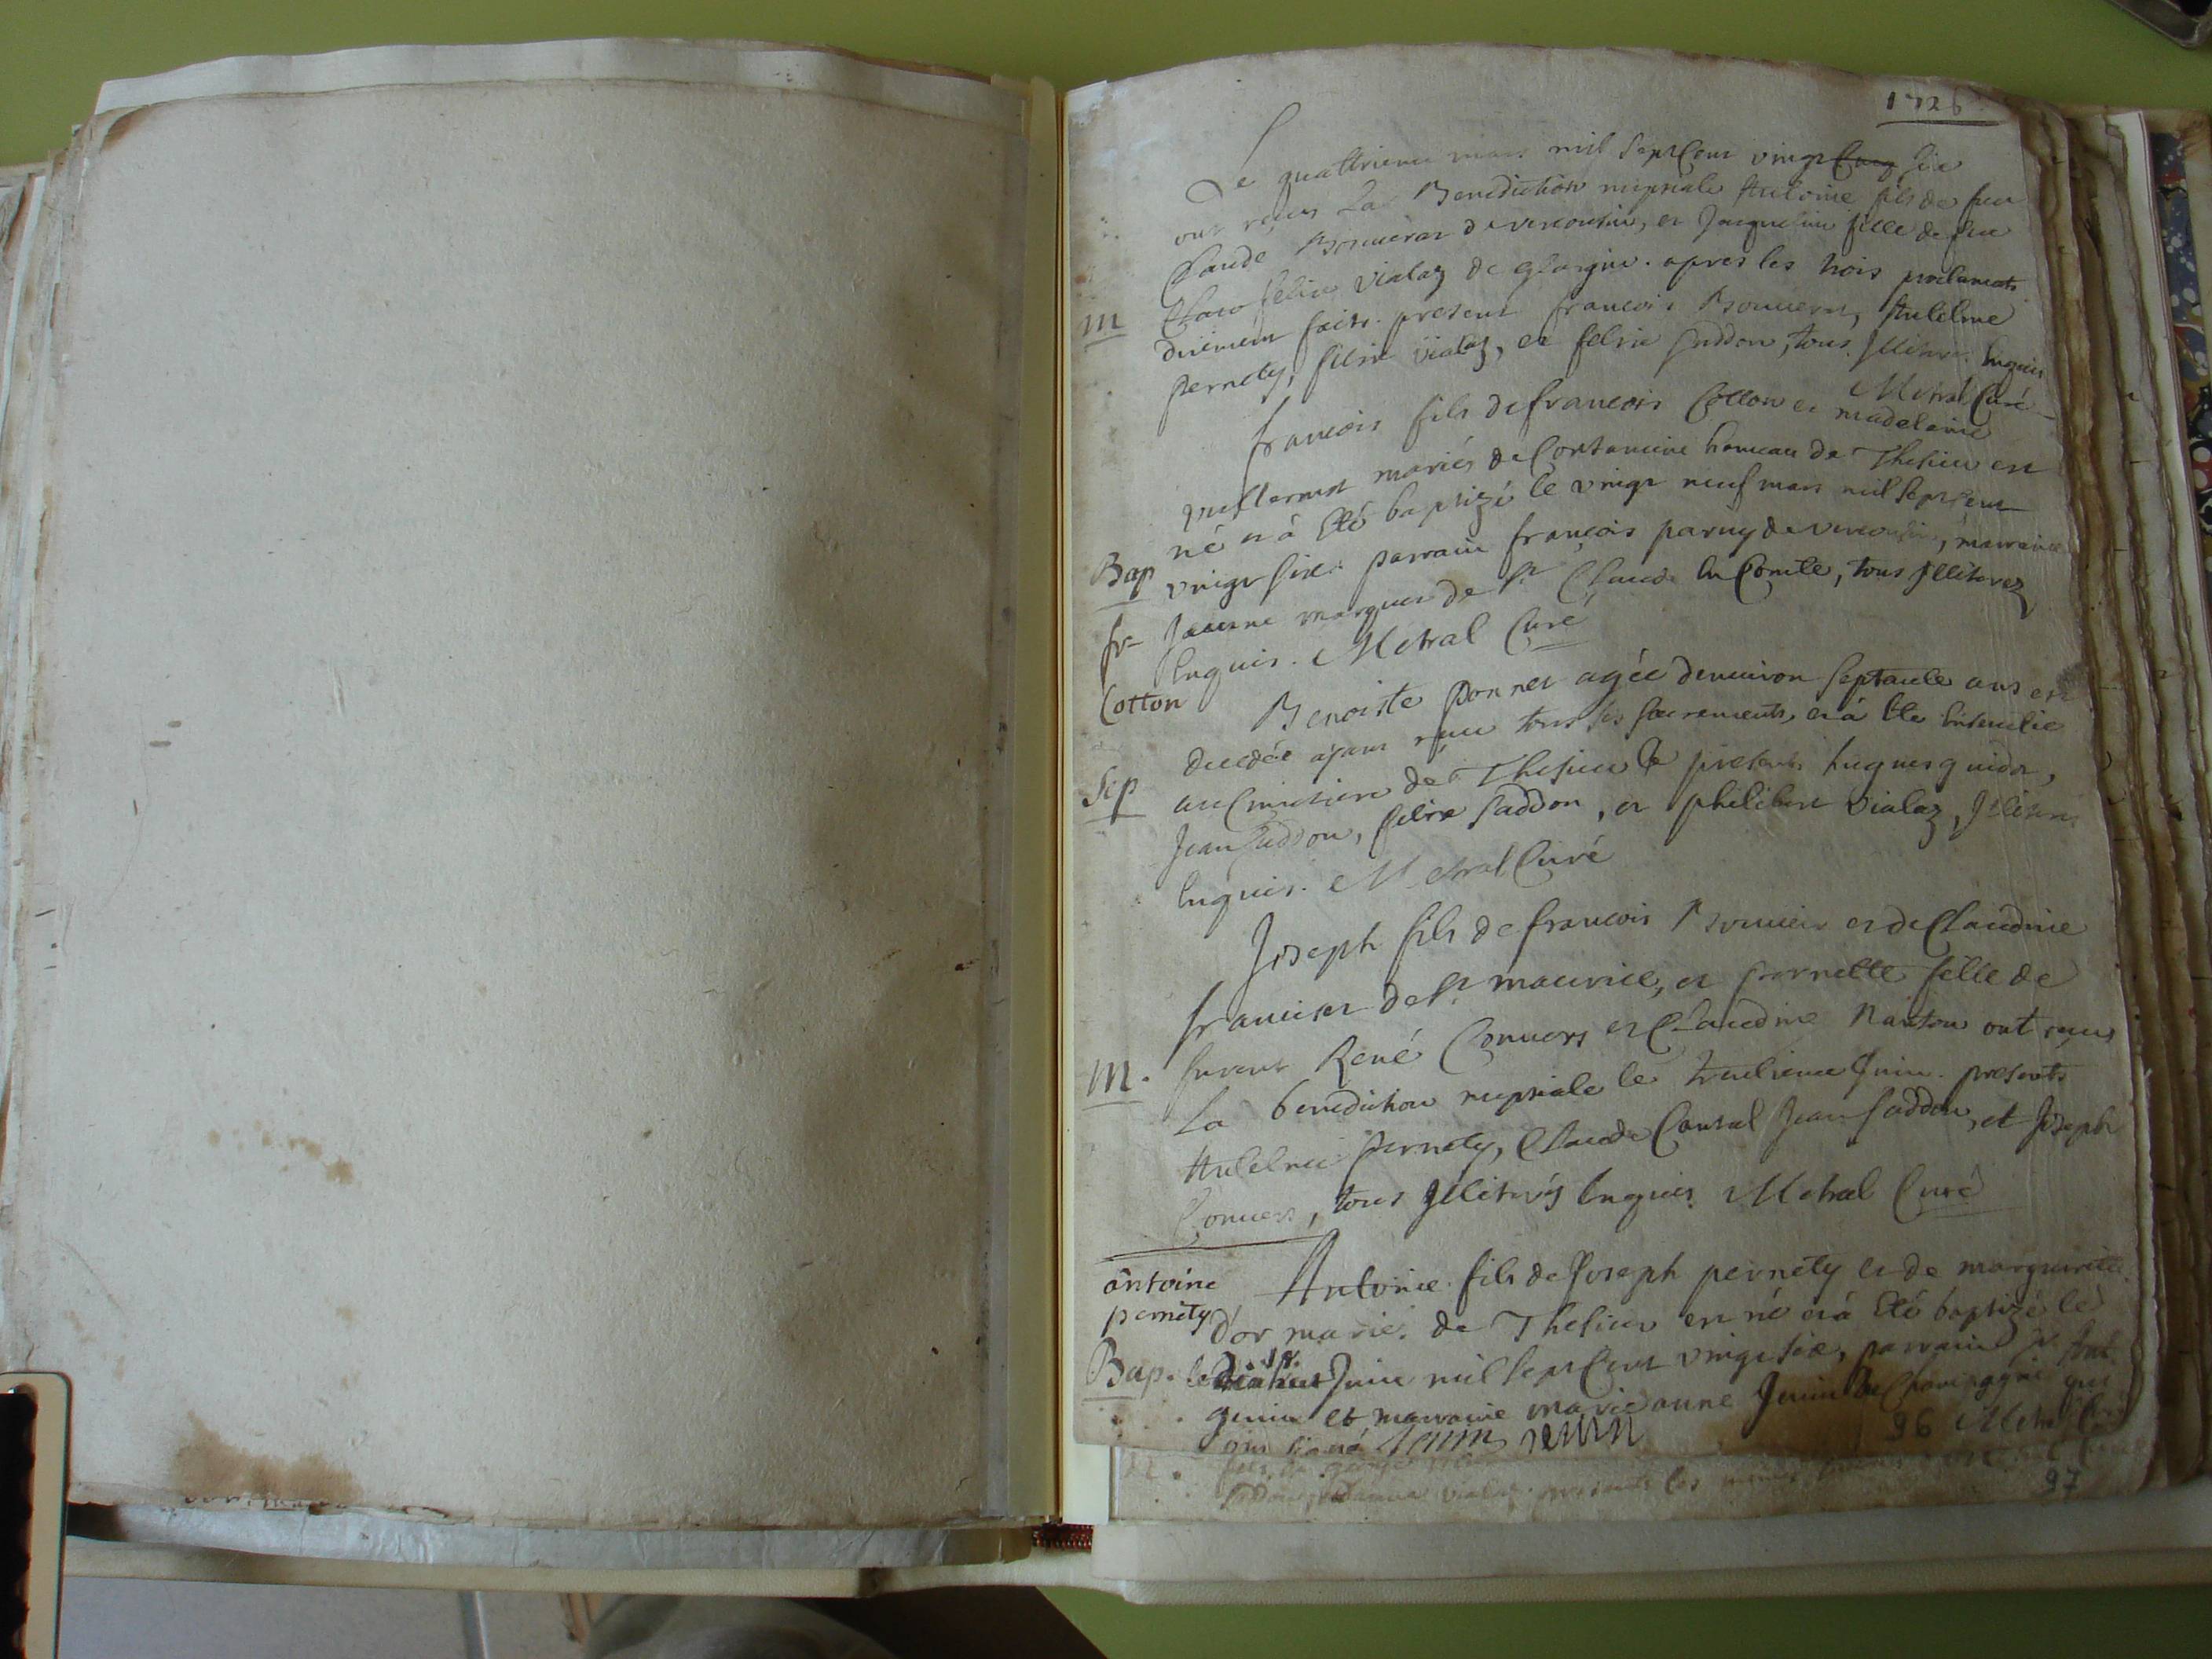 1726
Le quattrieme mars mil sept Cent vingt Cinq six
ont reçus La Benediction nuptiale Antoine fils de feu
Claude Bonnerat de vercoutin, et Jacqueline fille de feu
felix Vialaz de . apres les trois proclamats
M
düement faits. present francois Bonnerat, Antelme
pernety, felix vialaz, et felix Juddon, tous Illiteres. Enquis
Metral Curé
francois fils de francois Cotton et madelaine
mariés de Contamine hameau de Thesieu est
né et á Eté baptizé le vingt neuf mars mil sept cent
Bap
vingt six. parrain françois parny de vercoutin, marraine
fr-
Jeanne marguer de St Claude en Comté, tous Illiterez
Enquis. Metral Curé
Cotton
Benoiste ponnet agée d'environ septante ans est
decedée ayant reçu tous ses sacrements, et á Ete Ensevelie
Sep
au Cimitiere de Thesieu presents hugues guidor,
Jean Juddon, felix Juddon, et philibert vialaz, Illiteres
Enquis. Metral Curé
Joseph fils de francois Bonnier et de Claudine
francier de St maurice, et pernette fille de
M.
furent René Convers et Claudine Nanton ont reçus
La benediction nuptiale le Juin. presents
Antelme pernety, Claude Consul Jean Juddon, et Joseph
Convers, tous Illiterés Enquis Metral Curé
antoine
Antoine fils de Joseph pernety et de marguerite
pernety
D'or mariés de Thesieu est né et á Eté baptizé le
Bap. le
18. Juin mil sept Cent vingt six, parrain
Jenin et marraine marie anne Jenin de Champagne qui
96 Metral Curé
ont signé Jenin Jenin
vialaz presents les
97